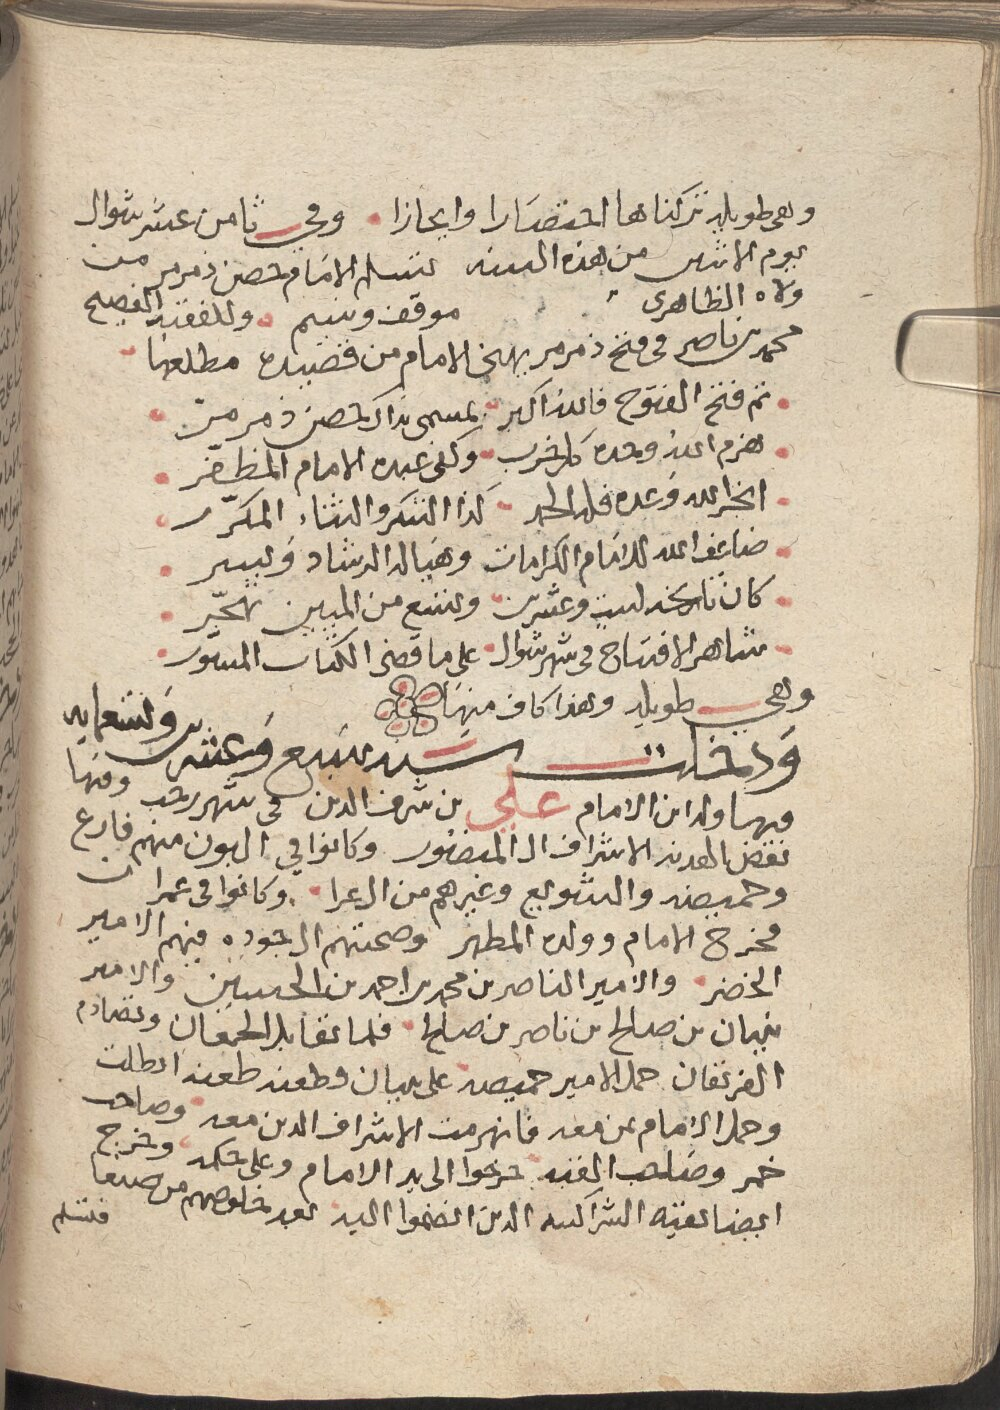 وهي طويله تركناها اختصارا وايجازا وفي ثامن عشر شوال
يوم الاثنين من هذه السنه تسلم الامام حصن ذمرمر من
ولاه الظاهري موقف وسم وللفقيه الفصيح
محمد بن ناصر في فتح ذمرمر يهني الامام من قصيده مطلعها
تم فتح الفتوح فالله اكبر بمسمى بذاك حصن ذمرمر
هزم الله وحده كل حزب وكفى عبده الامام المظفر
انجز الله وعده فله الحمد كذا الشكر والثناء المكرر
ضاعف الله للامام الكرامات وهيا له الرشاد ويسر
كان تاريخه لست وعشرين وتسع من المبين تحجر
شاهر الافتتاح في شهر شوال على ما قضى الكتاب المسور
وهي طويله وهذا كاف منها
ودخلت سنه سبع وعشرين وتسعمايه
فيها ولد ابن الامام علي بن شرف الدين في شهر رجب وفيها
نقض الهدنه الاشراف ال المنصور وكانوا في البون منهم فارع
وحميضه والشويع وغيرهم من الزعرا وكانوا في عمران
فخرج الامام وولده المطهر وصحبتهم ال جوده فيهم الامير
الخضر والامير الناصر بن محمد بن احمد بن الحسين والامير
بنهان بن صلاح بن ناصر بن صلاح فلما تقابل الجمعان وتصادم
الفريقان حمل الامير حميضه على بنهان فطعنه طعنه ابطلت
وحمل الامام بمن معه فانهزمت الاشراف الذين معه وصاحب
خمر وصاحب القنه خرجوا الى يد الامام وعلى حكمه وخرج
ايضا بقيه الشراكسه الذين انضموا اليه بعد خلوصهم من صنعا
فتسلم